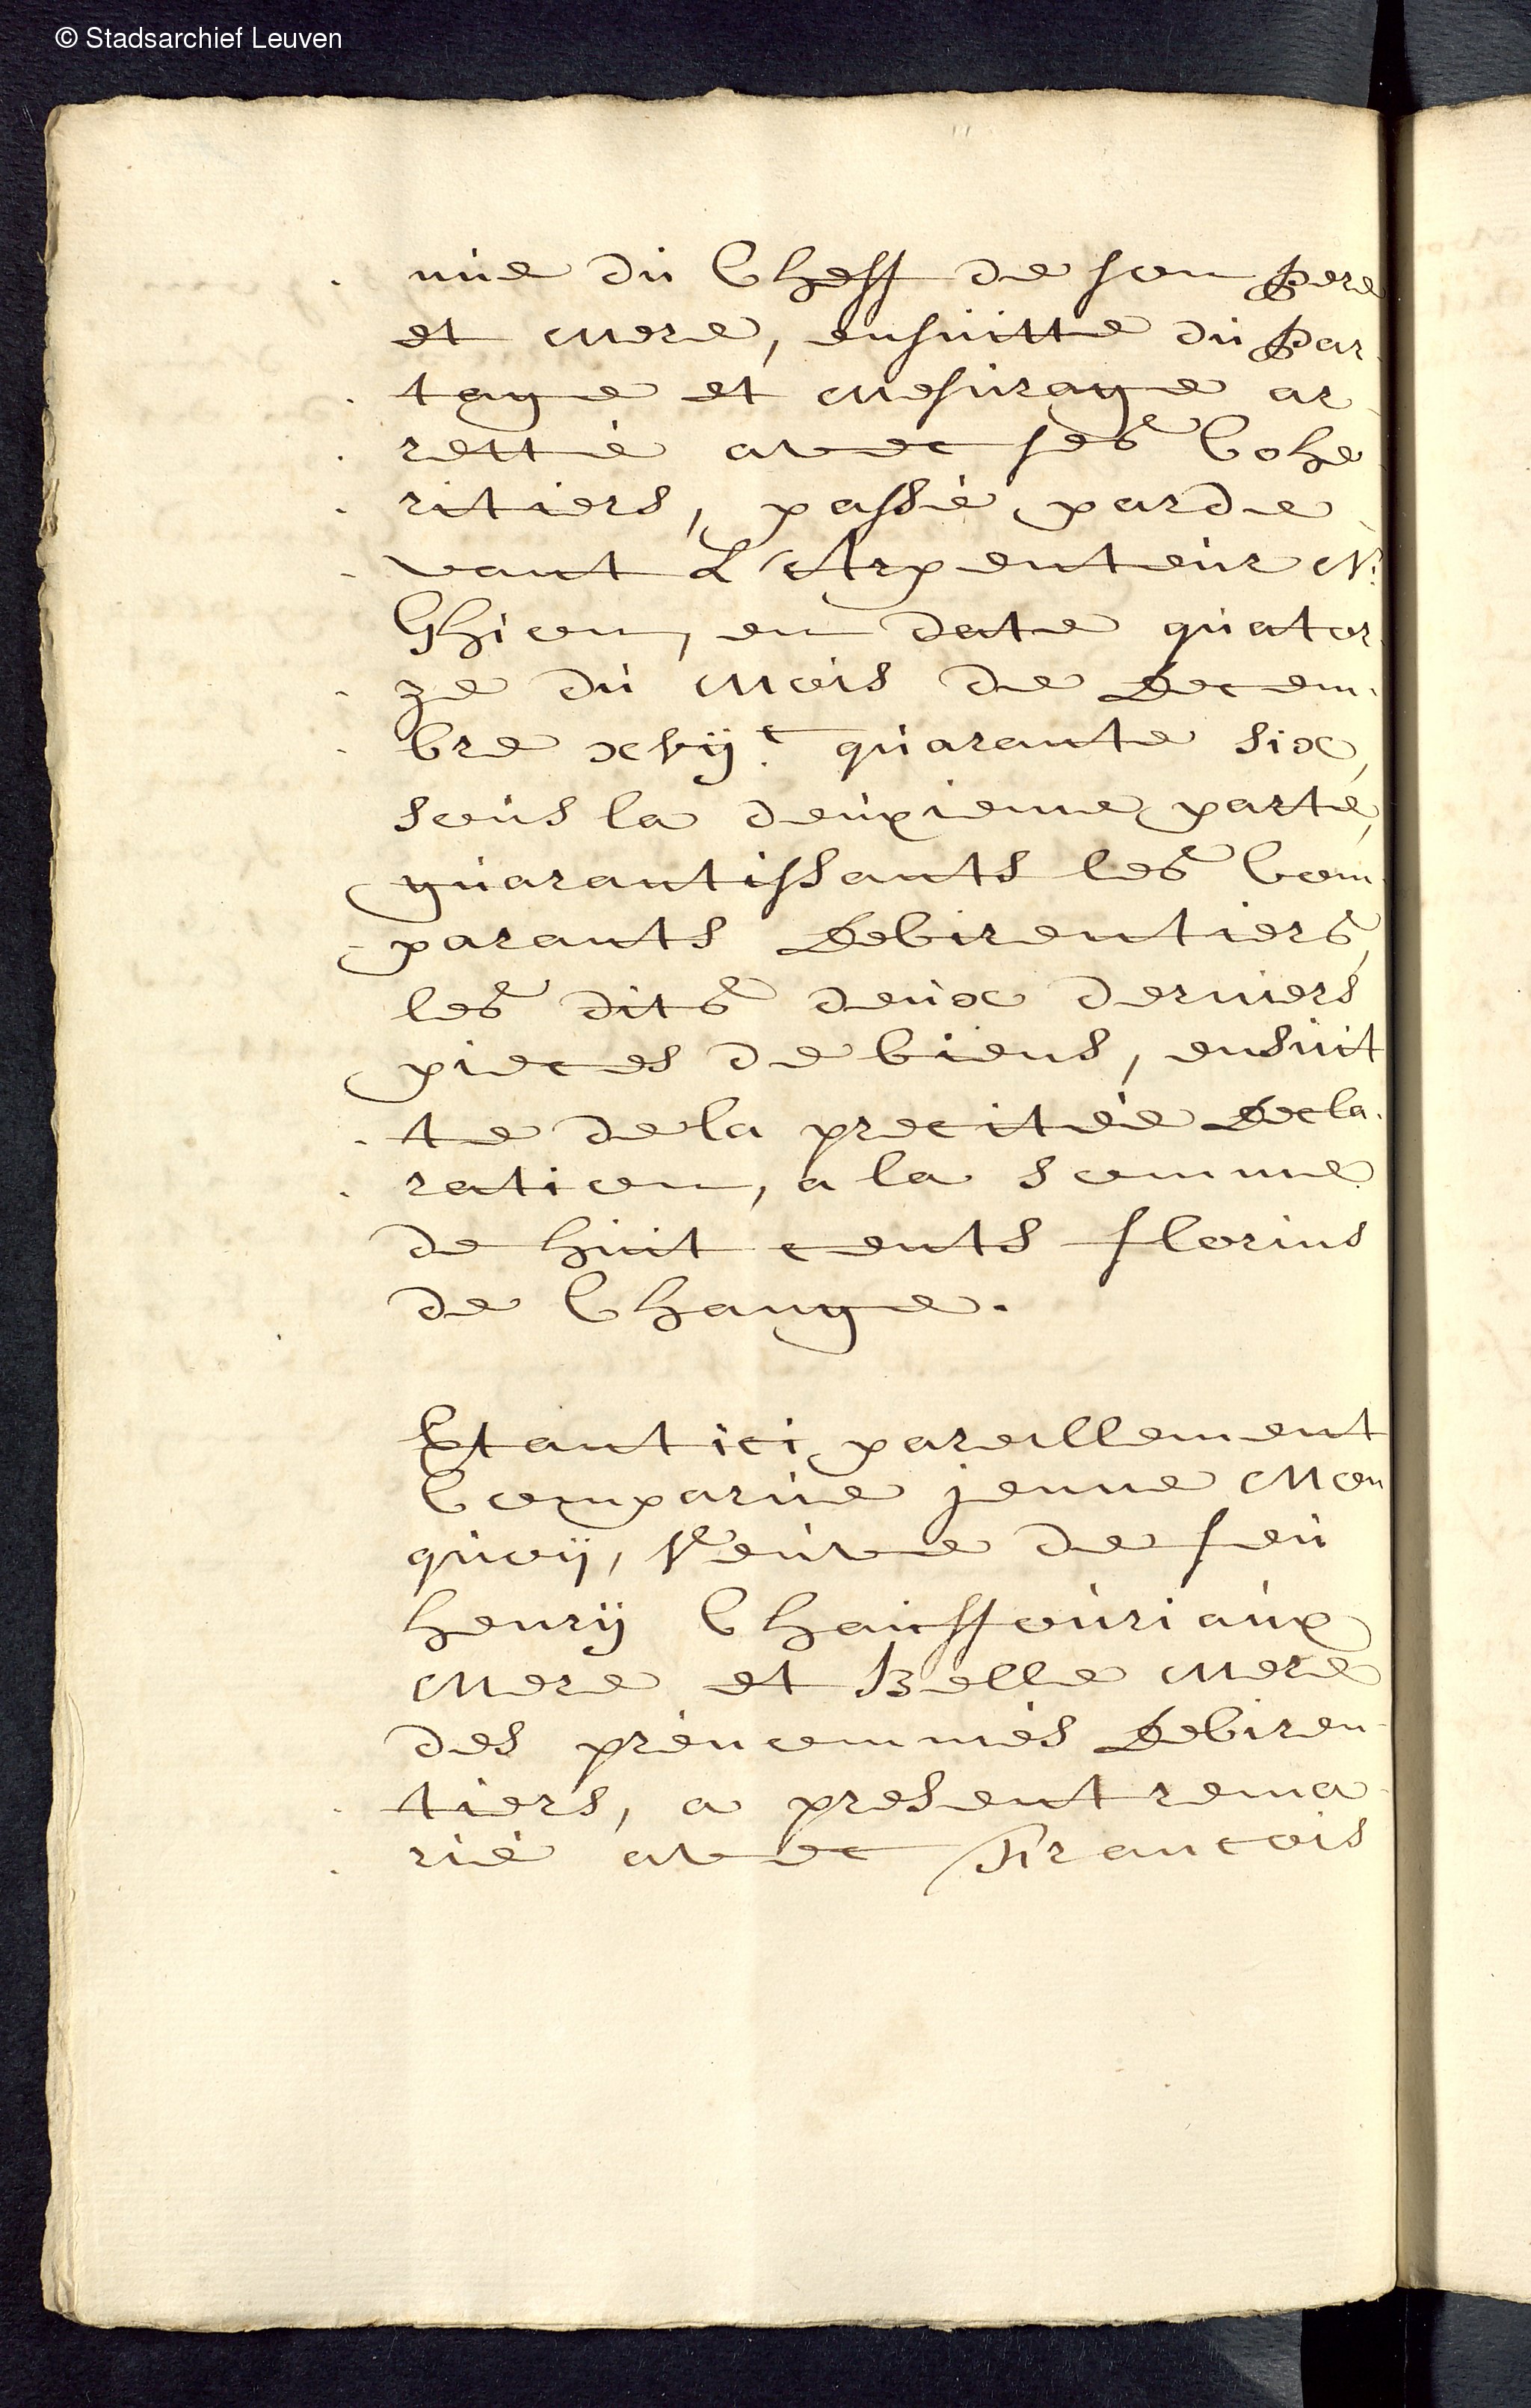 © Stadsarchief Leuven
nüe dü Cheff de son pere
et mere, ensuitte dü par
tage et mesurage ar
retté avec ses Cohe
ritiers, passé parde
vant L'Arpenteür N:
Ghion, en date quator
ze dü mois de Decem
bre xvijc quarante six,
soüs la deüxieme parte,
guarantissants les Com
parants Debirentiers,
les dits deüx derniers
pieces de biens, ensuit
te dela precitée Decla
ration, a la somme
de huit cents florins
de Change.
Etant ici pareillement
Comparüe jenne Mon
quoij, Veüve de feü
henrij Chaiffoüriaüx
mere et Belle mere
des prénommés Debiren
tiers, a present rema
rié avec François